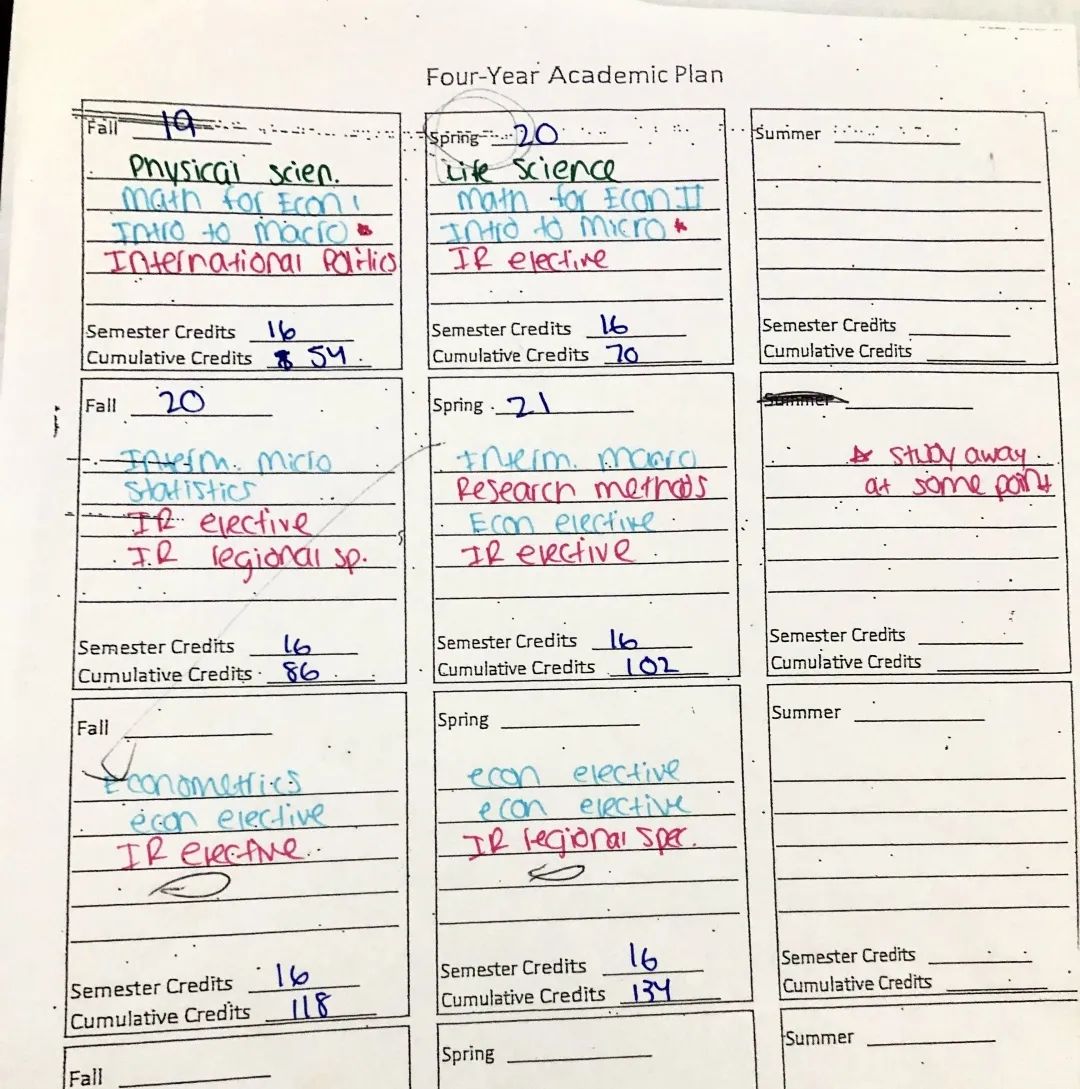 Four-Year Academic Plan
Fall 19
Physical scien.
Math for Econ I
Intro to Macro
International Politics
Semester Credits 16
Cumulative Credits 54
Spring 20
Life Science
Math for Econ II
Intro to Micro
IR elective
Semester Credits 16
Cumulative Credits 70
Summer
Semester Credits
Cumulative Credits
Fall 20
Interm. Micro
Statistics
IR elective
IR regional sp.
Semester Credits 16
Cumulative Credits 86
Spring 21
Interm. macro
Research methods
Econ elective
IR elective
Semester Credits 16
Cumulative Credits 102
Summer
study away
at some point
Semester Credits
Cumulative Credits
Fall
Econometrics
econ elective
IR elective
Semester Credits 16
Cumulative Credits 118
Spring
econ elective
econ elective
IR regional spec.
Semester Credits 16
Cumulative Credits 134
Summer
Semester Credits
Cumulative Credits
Fall
Spring
Summer